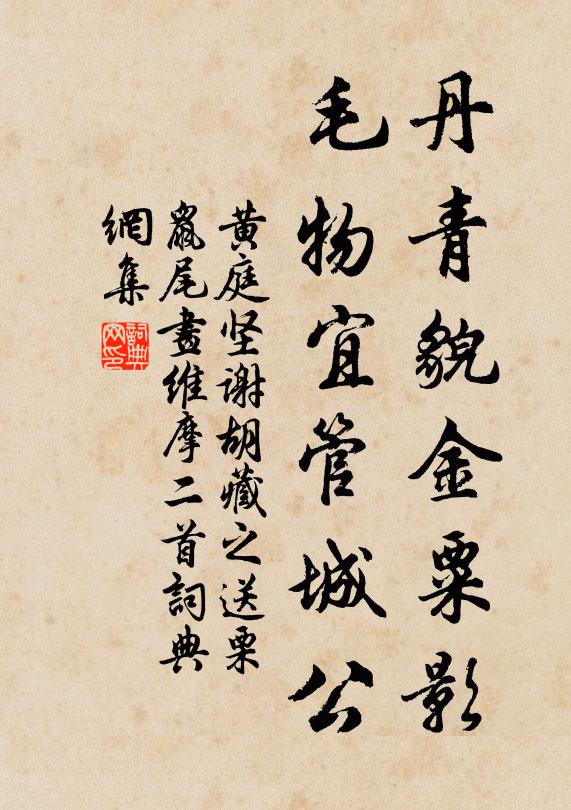 丹青貌金粟影
毛物宜管城公
黄庭坚謝胡藏之送栗
鼠尾畫維摩二首詞典
網集
詞典网印